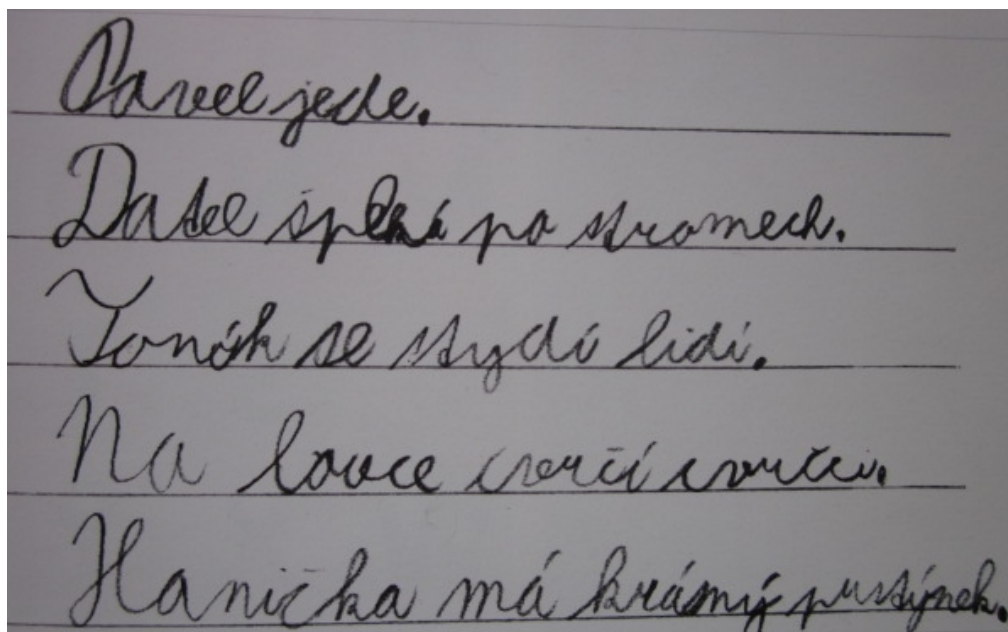 Pavel jede.
Datel šplhá po stromech.
Toník se stydí lidí.
Na louce cvrčí cvrčci.
Hanička má krásný prstýnek.